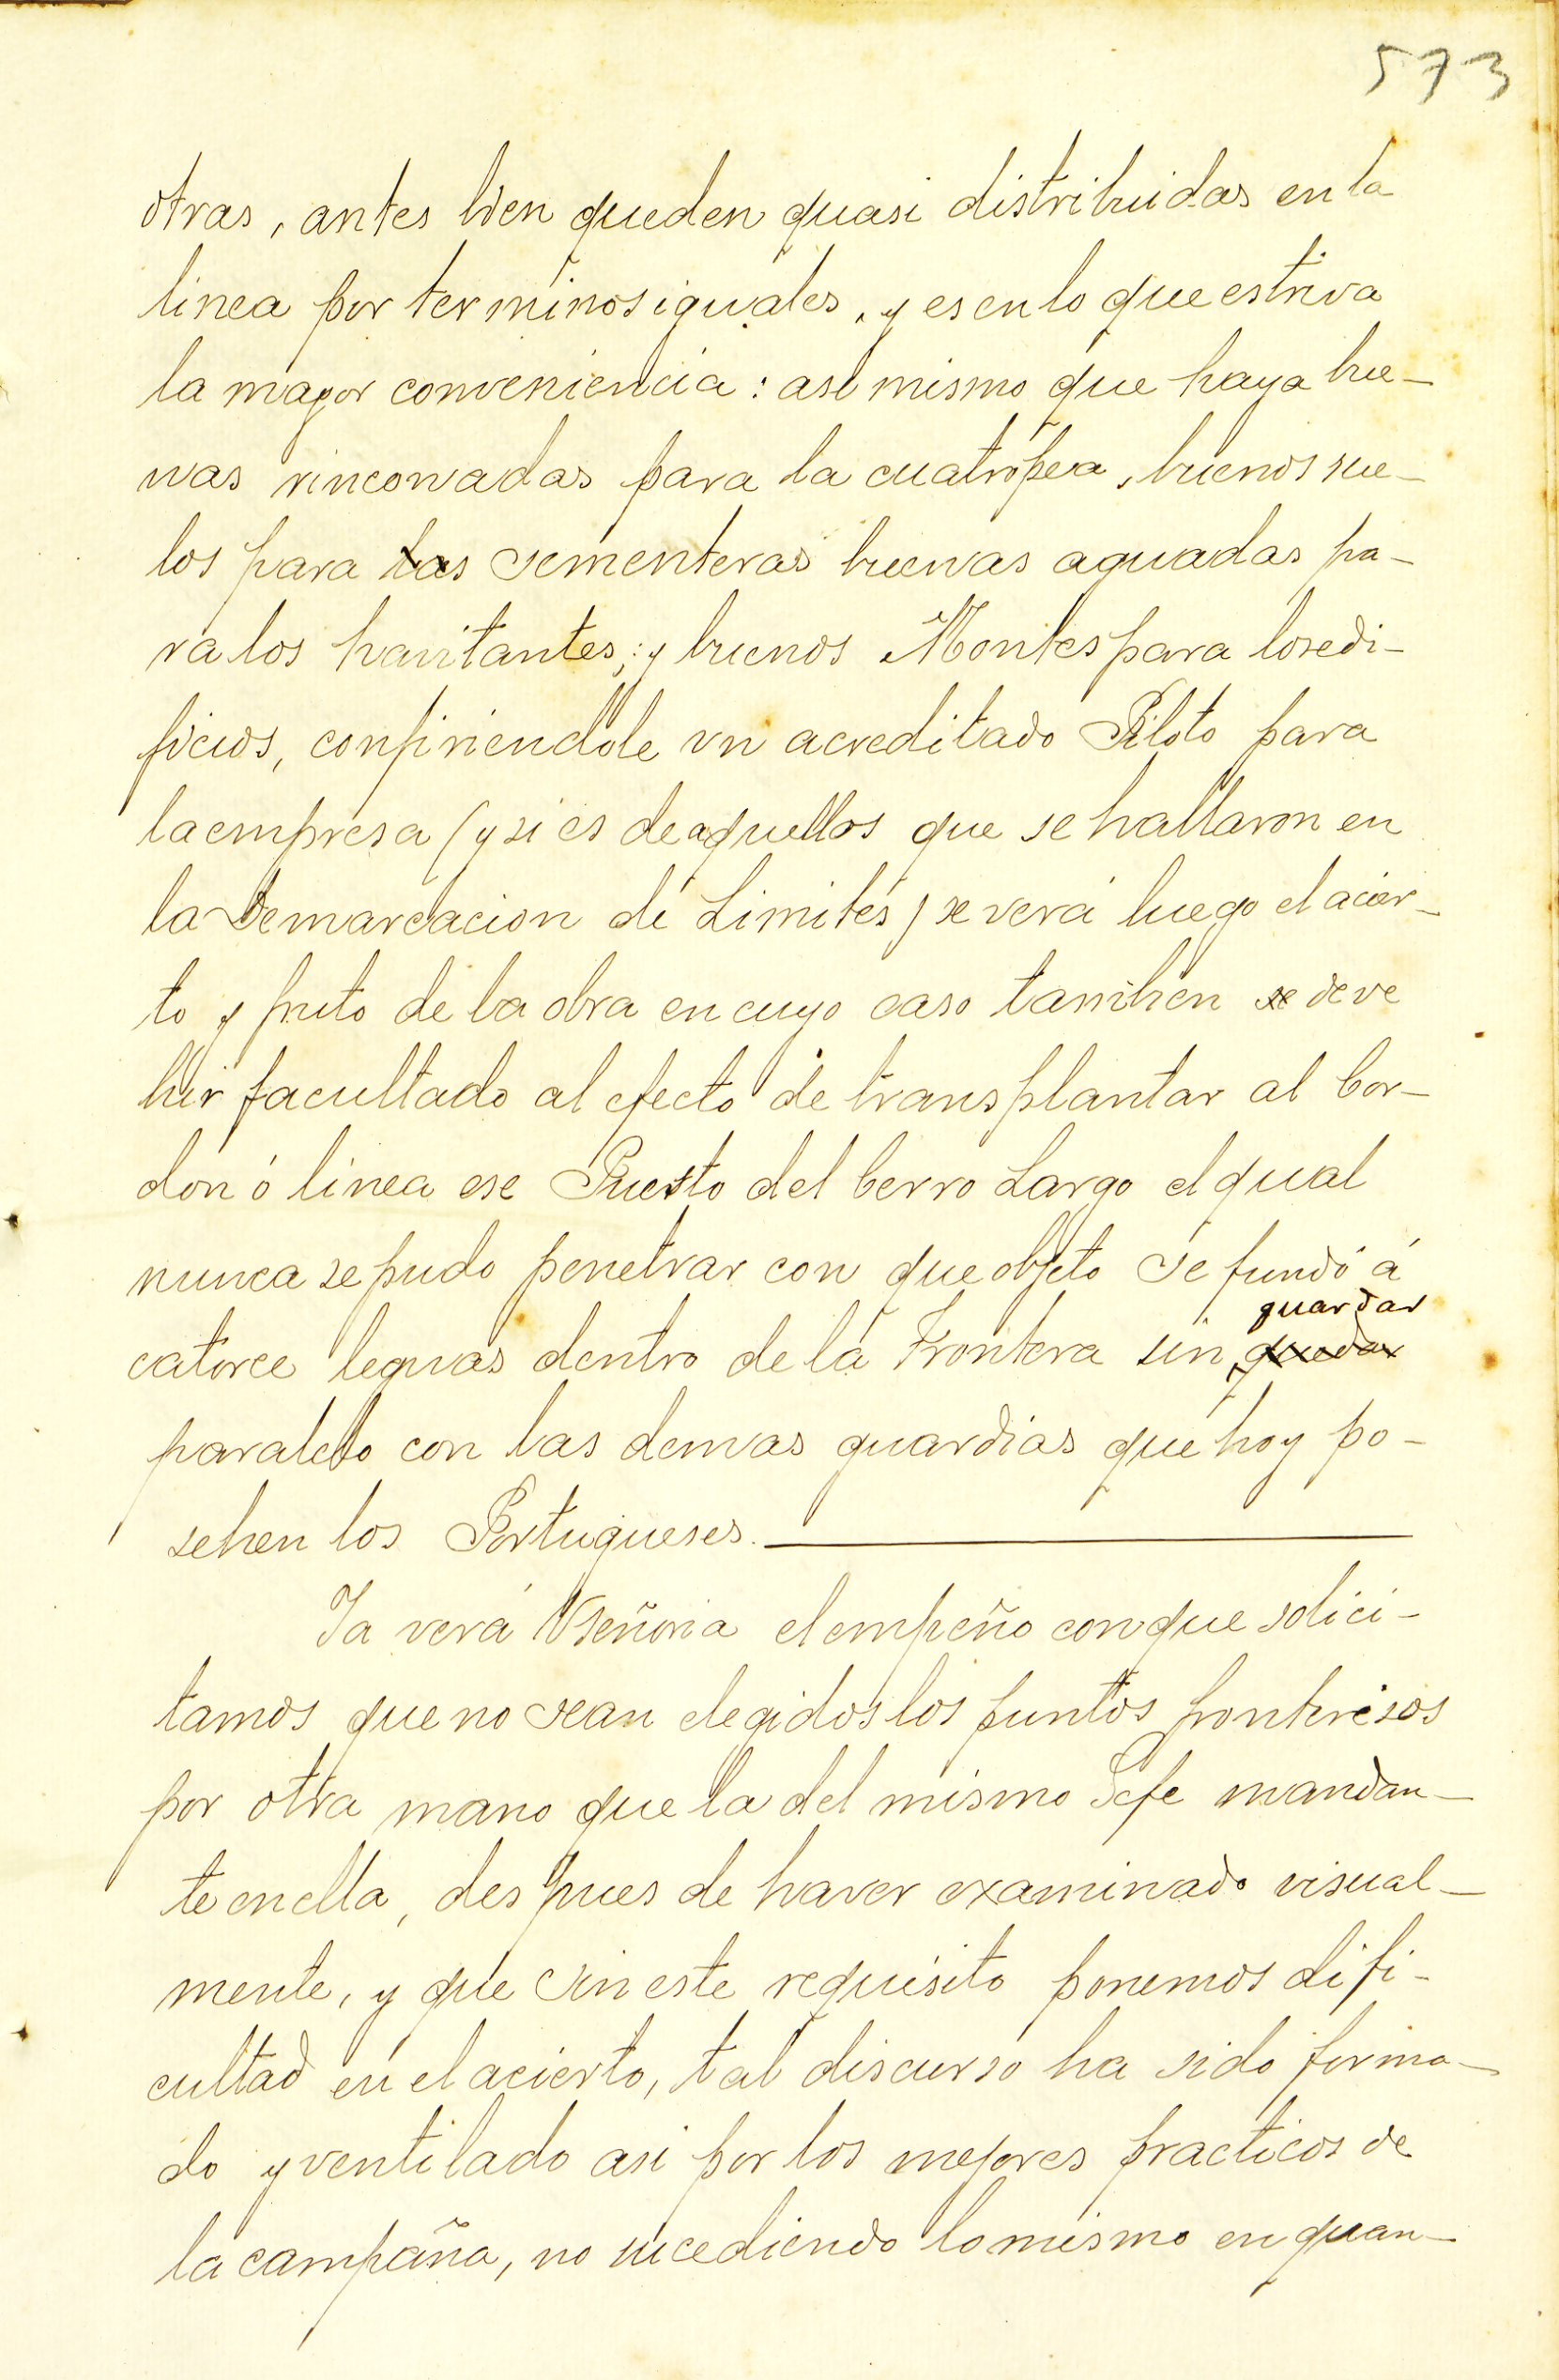 573
otras, antes bien queden quasi distribuidas en la
linea por terminos iguales, y es en lo que estriva
la mayor conveniencia: asi mismo que haya bue-
nas rinconadas para la cuatropea, buenos sue-
los para las sementeras buenas aguadas pa-
ra los havitantes; y buenos Montes para los edi-
ficios, confiriendole un acreditado Piloto para
la empresa (y si es de aquellos que se hallaron en
la Demarcacion de Limites) se verá luego el acier-
to y fruto de la obra en cuyo caso tambien se deve
hir facultado al efecto de transplantar al Cor-
don ó linea ese Puesto del Cerro Largo el qual
nunca se pudo penetrar con que objeto se fundó á
guardar
catorce leguas dentro de la Frontera sin quedar
paralelo con las demas guardias que hoy po-
sehen los Portugueses.
Ya verá VSeñoria el empeño con que solici-
tamos que no sean elegidos los puntos fronterisos
por otra mano que la del mismo Gefe mandan-
te en ella, despues de haver examinado visual-
mente, y que sin este requisito ponemos difi-
cultad en el acierto, tal discurso ha sido forma-
do y ventilado asi por los mejores practicos de
la campaña, no sucediendo lo mismo en quan-